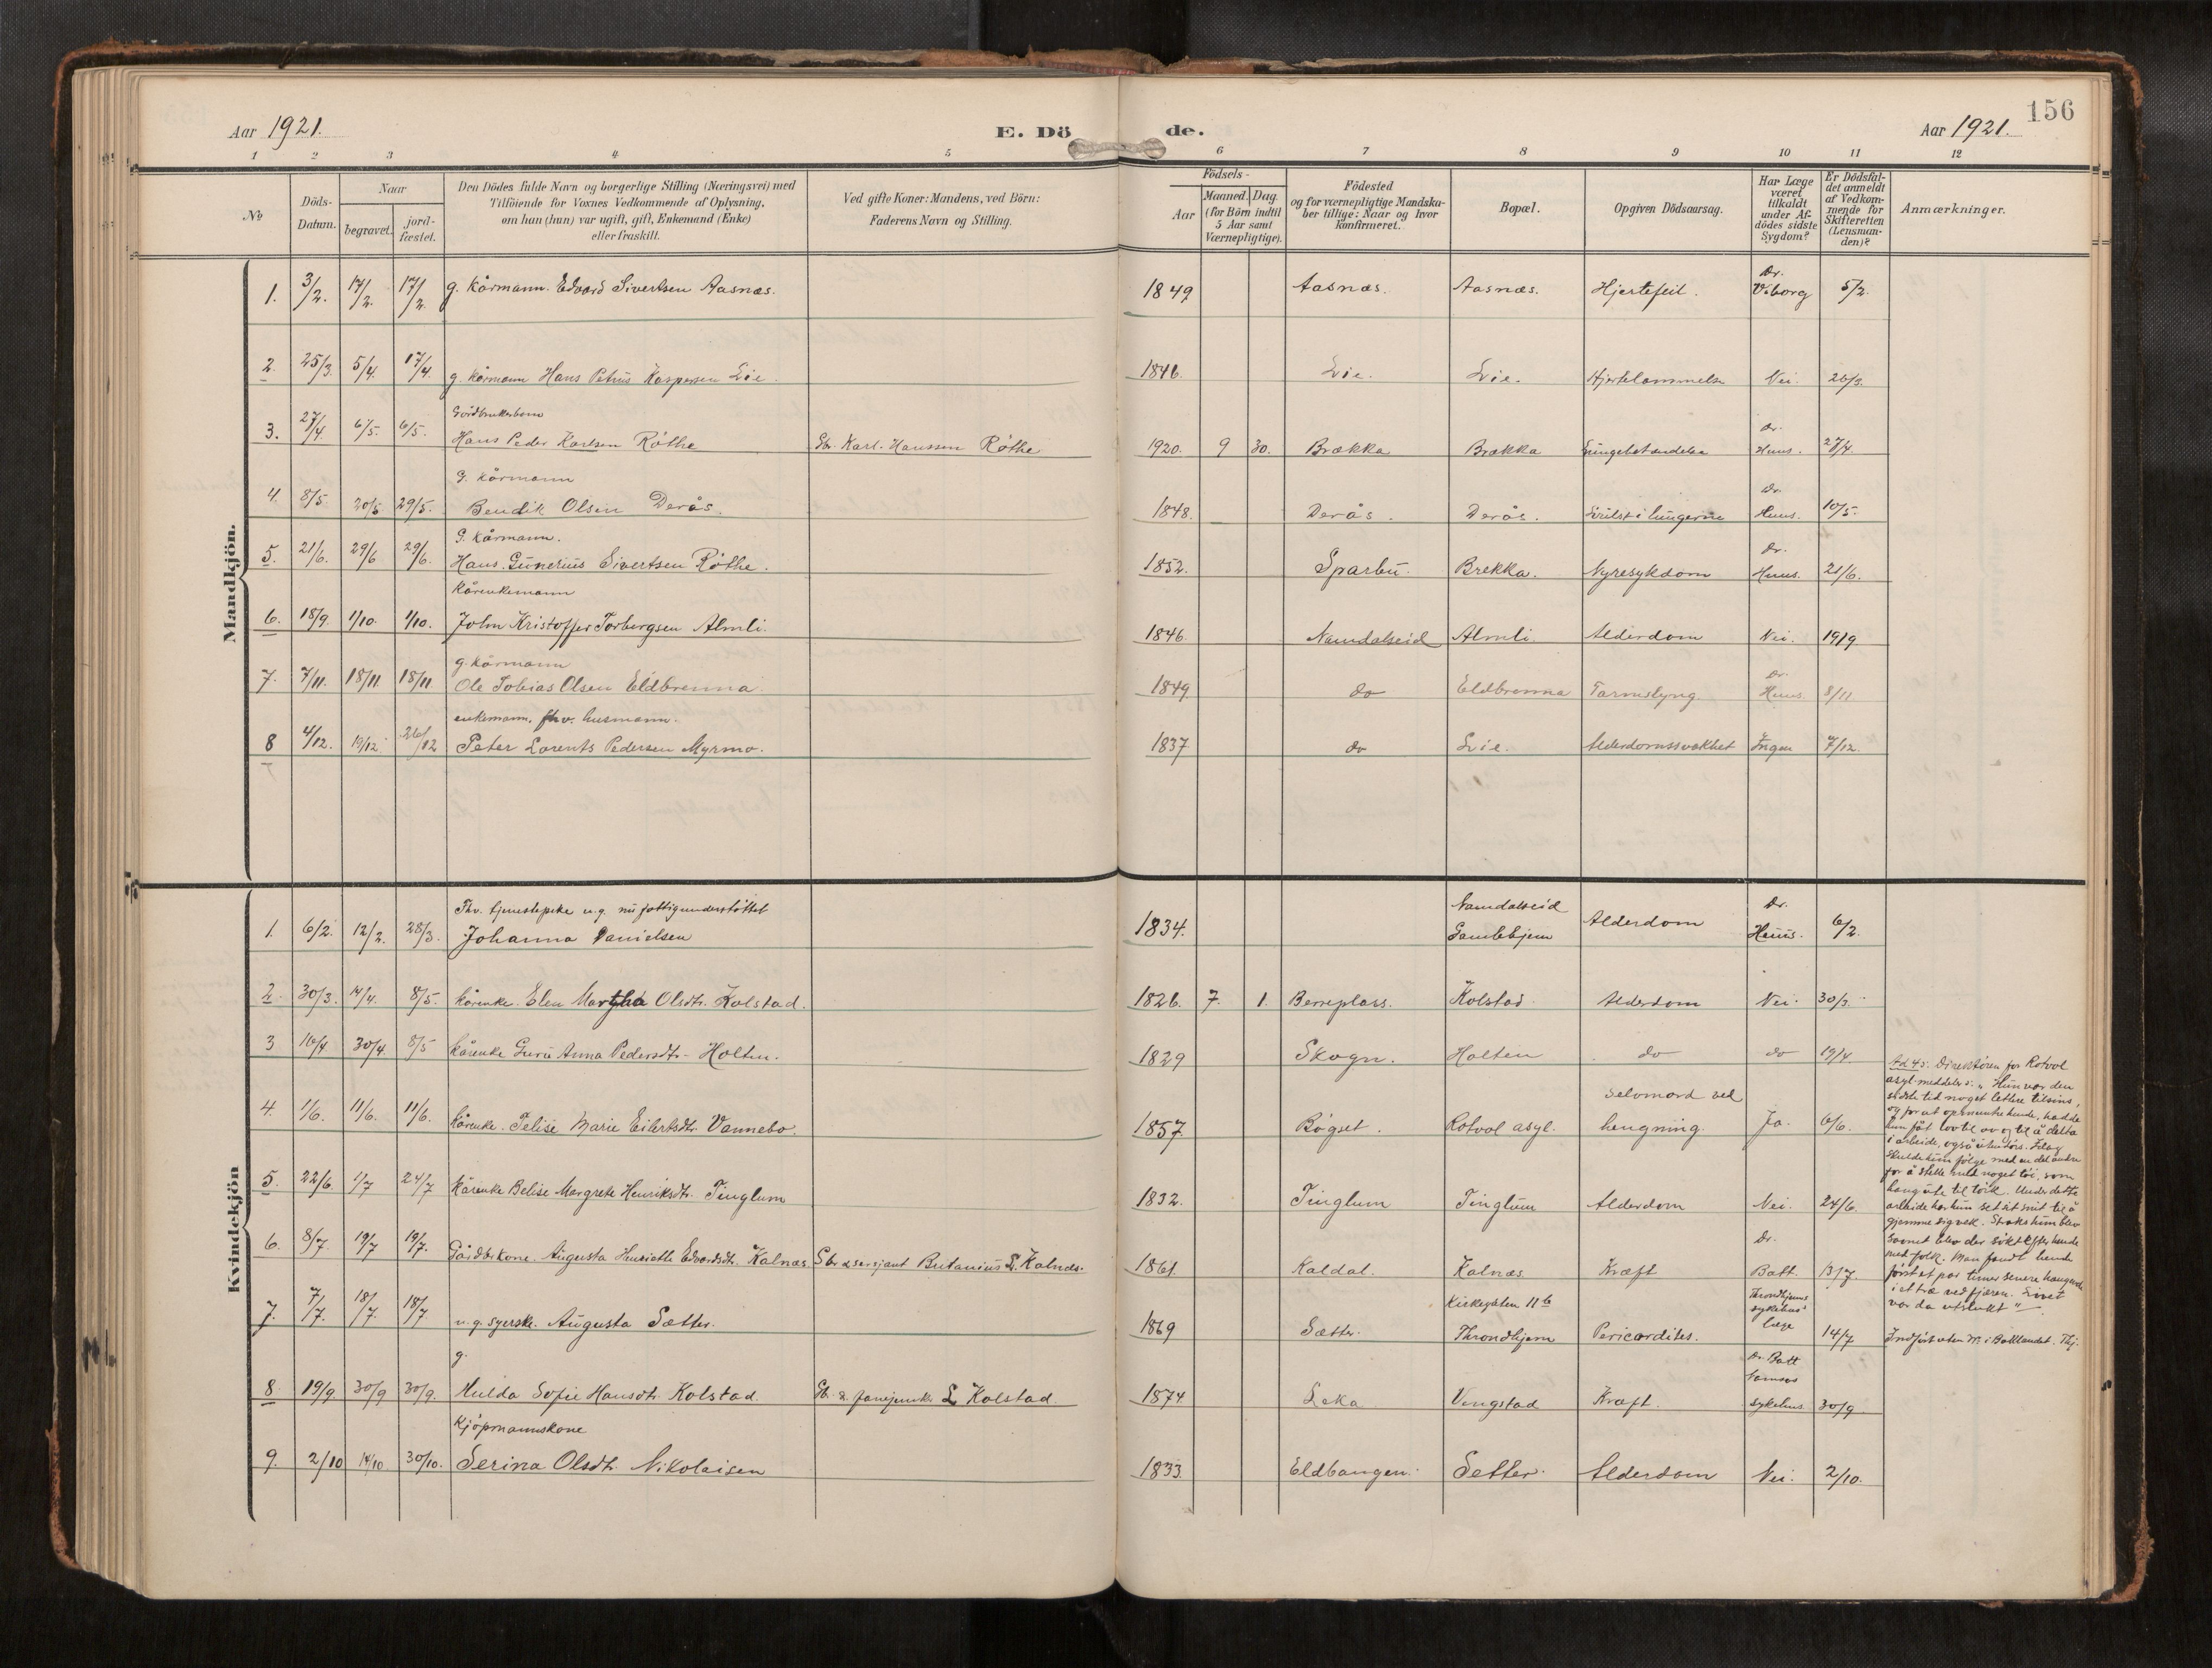 156
Aar 1921. E. Dö de. Aar 1921.
1 2 3 4 5 6 7 8 9 10 11 12
№ Döds-Datum. Naar begravet. jord-fæstet. Den Dödes fulde Navn og borgerlige Stilling (Næringsvei) med Tilföiende for Voxnes Vedkommende af Oplysning, om han (hun) var ugift, gift, Enkemand (Enke) eller fraskilt. Ved gifte Koner: Mandens, ved Börn: Faderens Navn og Stilling. Födsels- Aar Maaned. Dag. (for Börn indtil 5 Aar samt Værnepligtige). Födested og for værnepligtige Mandska-ber tillige: Naar og hvor konfirmeret. Bopæl. Opgiven Dödsaarsag. Har Læge været tilkaldt under Af-dödes sidste Sygdom? Er Dödsfal-det anmeldt af Vedkom-mende for Skifteretten (Lensman-den)? Anmærkninger.
Mandkjön.
1. 3/2. 17/2. 17/2. g. kårmann. Edvard Sivertsen Aasnæs. 1849 Aasnæs. Aasnæs. Hjertefeil. Dr. Viborg 5/2.
2. 25/3. 5/4. 17/4. g. kårmann Hans Petrus Kaspersen Lie. 1846. Lie. Lie. Hjertelammelse Nei. 26/3.
3. 27/4 6/5. 6/5. Gårdbrukerbarn
Hans Peder Karlsen Röthe Gbr. Karl. Hanssen Röthe 1920. 9 30. Brækka Brækka Lungebetændelse Dr. Huus. 27/4.
4. 8/5 20/5 29/5. G. kårmann
Bendik Olsen Derås. 1848. Derås. Derås. i lungerne Dr. Huus. 10/5.
5. 21/6. 29/6 29/6. G. kårmann.
Hans Gunerius Sivertsen Röthe. 1852. Sparbu. Brekka. Nyresykdom Dr. Huus. 21/6.
6. 18/9. 1/10. 1/10. Kårenkemann
John Kristoffer Torbergsen Almli. 1846. Namdalseid Almli. Alderdom Nei. 19/9.
7. 7/11. 18/11. 18/11 g. kårmann
Ole Tobias Olsen Eldbrenna 1849. do Eldbrenna Tarmslyng. Dr. Huus. 8/11.
8 4/12. 19/12 26/12 enkemann, fhv. husmann.
Peter Lorents Pedersen Myrmo. 1837 do Lie. Alderdomssvakhet Ingen 7/12.
Kvindekjön
1. 6/2. 12/2. 28/3. Fhv. tjenestepike u.g. nu fattigunderstöttet
Johanna Danielsen 1834. Namdalseid Gamlehjem Alderdom Dr. Huus. 6/2.
2. 30/3. 14/4. 8/5. kårenke. Elen Martha Olsdtr. Kolstad. 1826. 7. 1. Berreplass. Kolstad Alderdom Nei. 30/3.
3 16/4 30/4. 8/5 kårenke Guru Anna Pedersdtr. Holten. 1829 Skogn. Holten do do 19/4.
4. 1/6. 11/6. 11/6. kårenke. Felise Marie Eilertsdtr. Vannebo. 1857. Bögset. Rotvol asyl. selvmord ved hengning. Ja. 6/6.
5. 22/6. 1/7 24/7 kårenke Belise Margrete Henriksdtr. Tinglum 1832. Tinglum Tinglum Alderdom Nei. 24/6.
6. 8/7. 19/7 19/7. Gårdbr.kone. Augusta Henriette Edvardsdtr. Kalnæs Gbr & sersjant Butanius L. Kalnæs. 1861. Kaldal. Kalnæs Kræft Dr. Batt. 13/7.
7. 7/7. 18/7. 18/7 u.g. syerske. Augusta Sætter. 1869 Sætter. Kirkegaten 11 b Throndhjem Pericardites. Throndhjems sykehus' læge 14/7 Indfört uten Nr. i Baklandet. Thj.
8. 19/9 30/9 30/9. g.
Hulda Sofie Hansdtr. Kolstad. Gb. & fanejunk. L Kolstad. 1874. Leka Vengstad Kræft. Dr. Batt Namsos sykehus 30/9
9. 2/10 14/10 30/10. Kjöpmannskone
Serina Olsdtr. Nikolaisen 1833. Eldbangen. Setter. Alderdom Nei. 2/10.
Ad 4: Direktören for Rotvol
asyl meddeler: "Hun var den
sidste tid noget lettere tilsins,
og for at opmuntre hende, hadde
hun fåt lov til av og til å delta
i arbeide, også utendörs. Idag
skulde hun fölge med en del andre
for å stelle med noget töi, som
hang ute til törk. Under dette
arbeide har hun set sit snit til å
gjemme sig vek. Straks hun blev
savnet blev der sökt efter hende
med folk. Man fandt hende
först et par timer senere hengende
i et træ ved fjæren. Livet
var da utslukt"